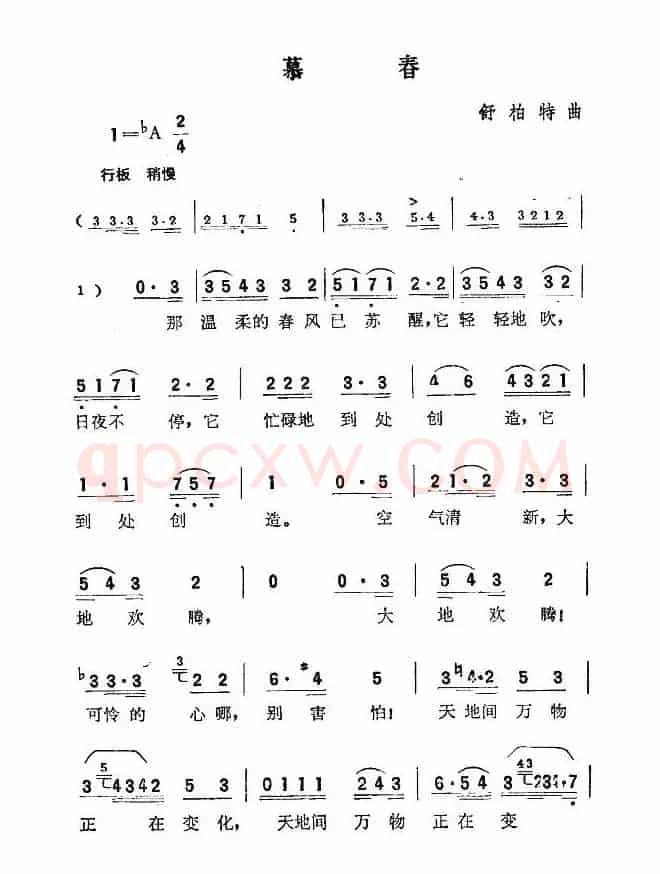 慕 春
舒柏特曲
1=♭A 2/4
行板 稍慢
( 3 3·3 3·2 | 2 1 7 1 5 | 3 3·3 5·4 | 4·3 3 2 1 2 |
1 ) 0·3 | 3 5 4 3 3 2 | 5 1 7 1 2·2 | 3 5 4 3 3 2 |
那温柔的春风已苏醒,它轻轻地吹,
5 1 7 1 2·2 | 2 2 2 3·3 | 4 6 4 3 2 1 |
日夜不停,它忙碌地到处创造,它
qpcxw.COM
1·1 7 5 7 | 1 0·5 | 2 1·2 3·3 |
到处创造。空气清新,大
5 4 3 2 | 0 0·3 | 5 4 3 2 |
地欢腾,大地欢腾!
♭3 3·3 3 2 2 | 6·#4 5 | 3 ♮4·2 5 3 |
可怜的心哪,别害怕!天地间万物
3 5 4 3 4 2 5 3 | 0 1 1 1 2 4 3 | 6·5 4 3 43 2 3 4·7 |
正在变化,天地间万物正在变